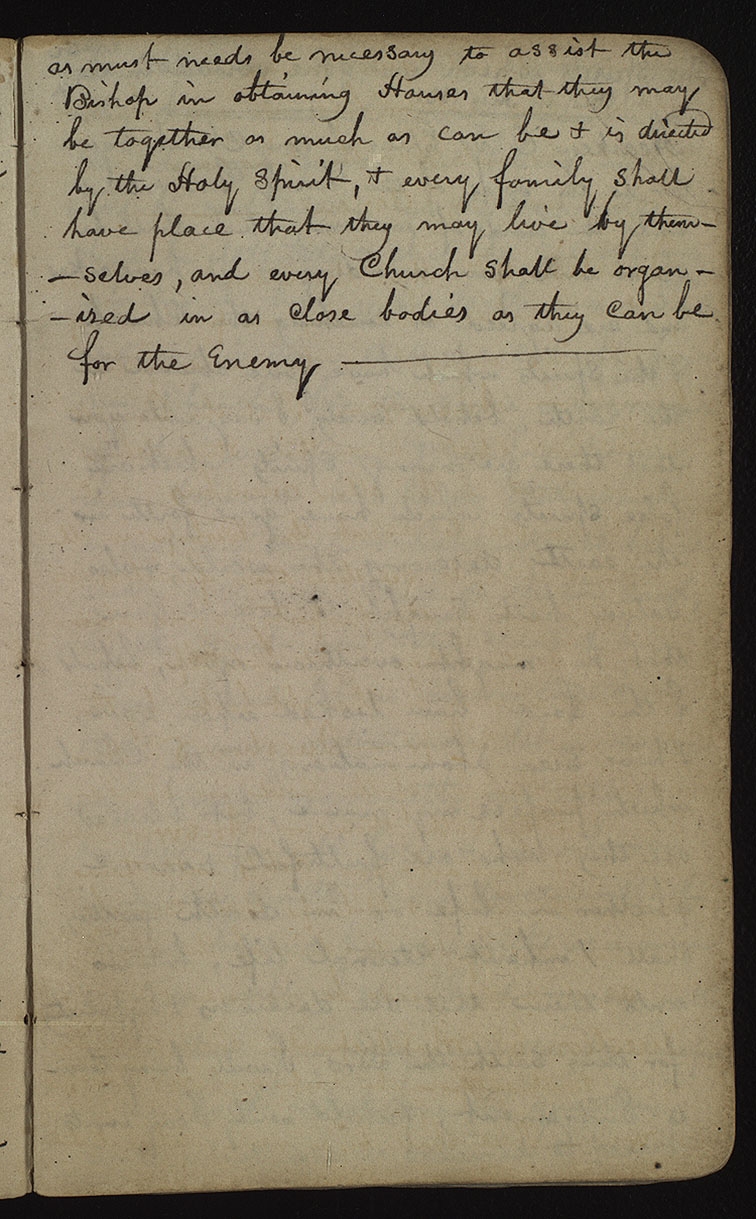 as must needs be necessary to assist the
Bishop in obtaining Houses that they may
be together as much as can be & is directed
by the Holy Spirit, & every family shall
have place that they may live by them-
-selves, and every Church shall be organ-
-ized in as close bodies as they can be
for the Enemy